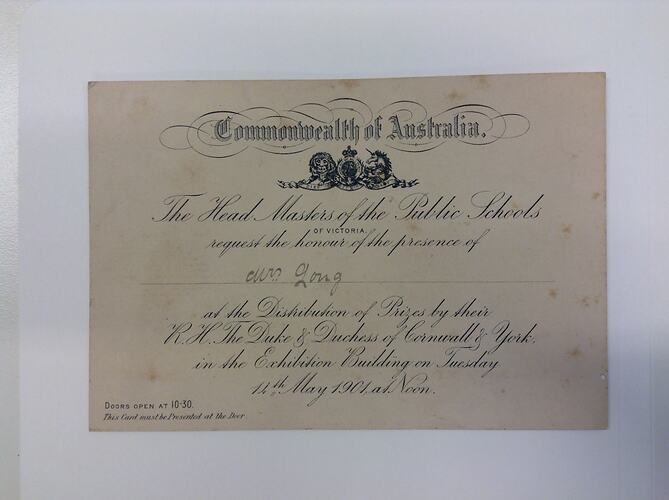 Commonwealth of Australia.
The Head Masters of the Public Schools
OF VICTORIA.
request the honour of the presence of
Mrs Long
at the Distribution of Prizes by their
R.H. The Duke & Duchess of Cornwall & York,
in the Exhibition Building on Tuesday
14th May 1901, at Noon.
DOORS OPEN AT 10-30.
This Card must be Presented at the Door.